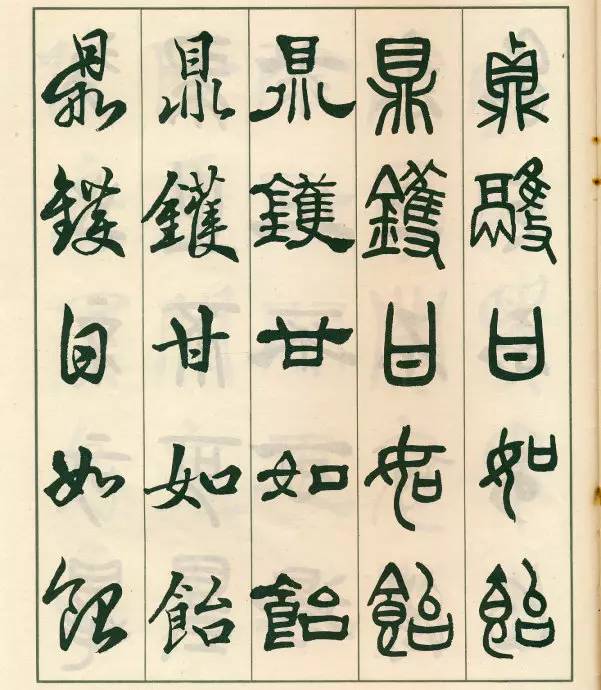 鼎鑊甘如飴
鼎鑊甘如飴
鼎鑊甘如飴
鼎鑊甘如飴
鼎鑊甘如飴